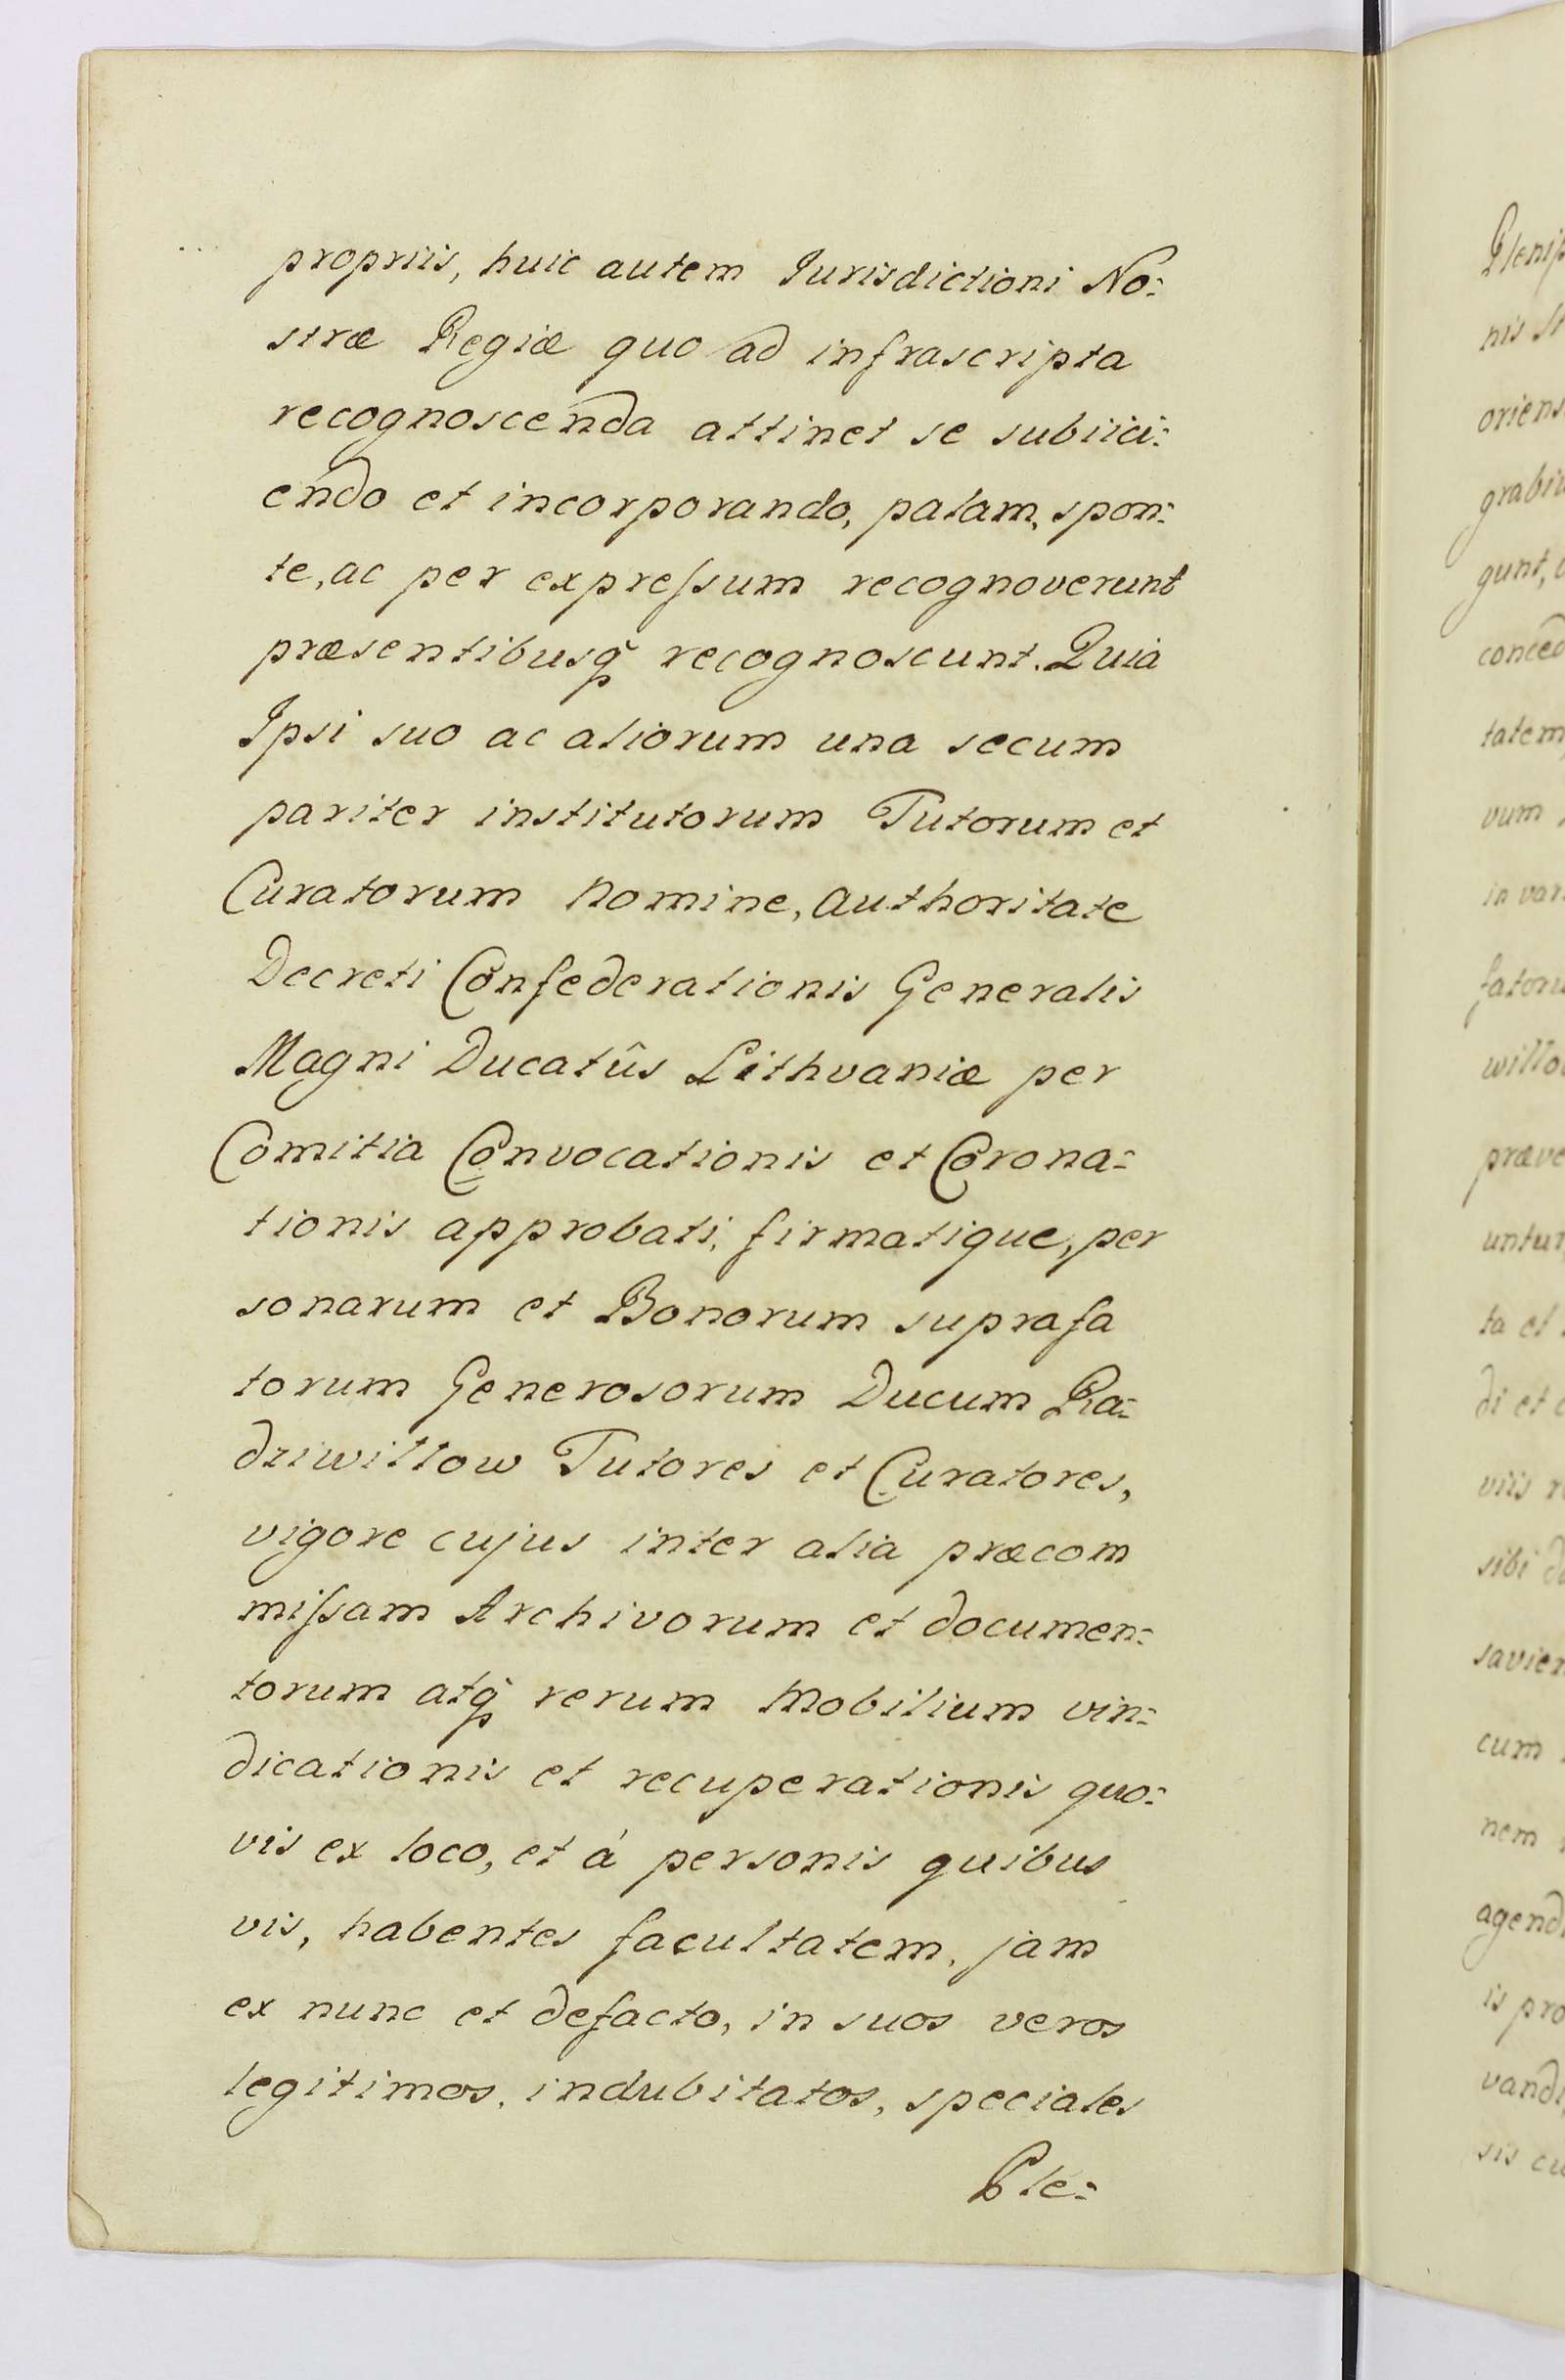 propriis, huic autem Iurisdictioni No:
stræ Regiæ quo ad infrascripta
recognoscenda attinet se subiici:
endo et incorporando, palam, spon:
te, ac per expreſsum recognoverunt
præsentibusq̃ recognoscunt. Quia
Ipsi suo ac aliorum una secum
pariter institutorum Tutorum et
Curatorum Nomine, Authoritate
Decreti Confederationis Generalis
Magni Ducatûs Lithvaniæ per
Comitia Convocationis et Corona:
tionis approbati, firmatique, per
sonarum et Bonorum suprafa
torum Generosorum Ducum Ra:
dziwiłłow Tutores et Curatores,
vigore cujus inter alia præcom
miſsam Archivorum et documen:
torum atq̃ rerum Mobilium vin:
dicationis et recuperationis quo:
vis ex loco, et á personis quibus
vis, habentes facultatem, jam
ex nunc et defacto, in suos veros
legitimos, indubitatos, speciales
Ple:
Plenip
nis
oriens
grabiu
gunt,
conced
tatem
vum
in var
fatoru
willo
præve
untur
ta et
di et
viis
sibi
savien
cum
nem
agend
is pro
vandi
sis cu